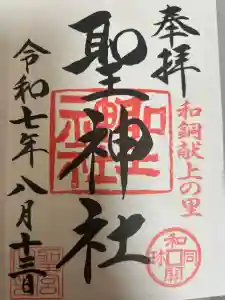 奉拝
和銅献上の里
聖神社
令和七年八月十三日
和同開珎